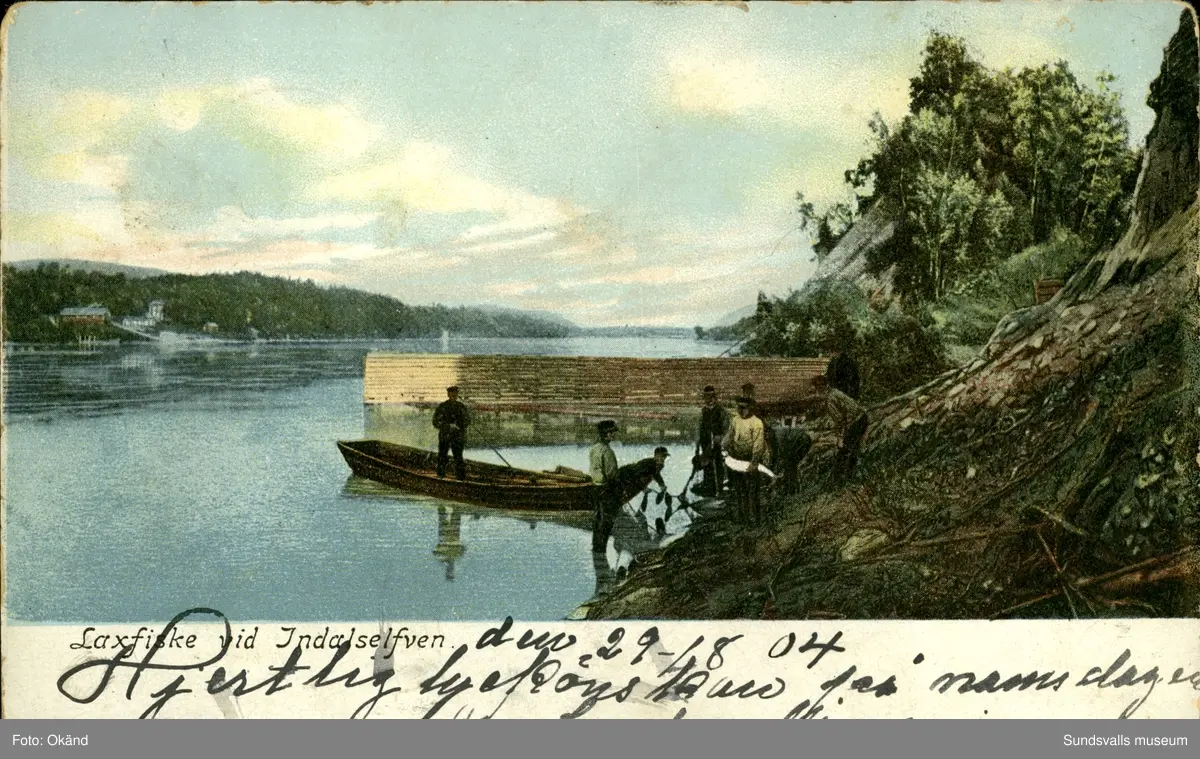 Laxfiske vid Indalselfven.
den 29-/8 04
Hjertlig lyckönskan på namsdagen
Foto: Okänd
Sundsvalls museum